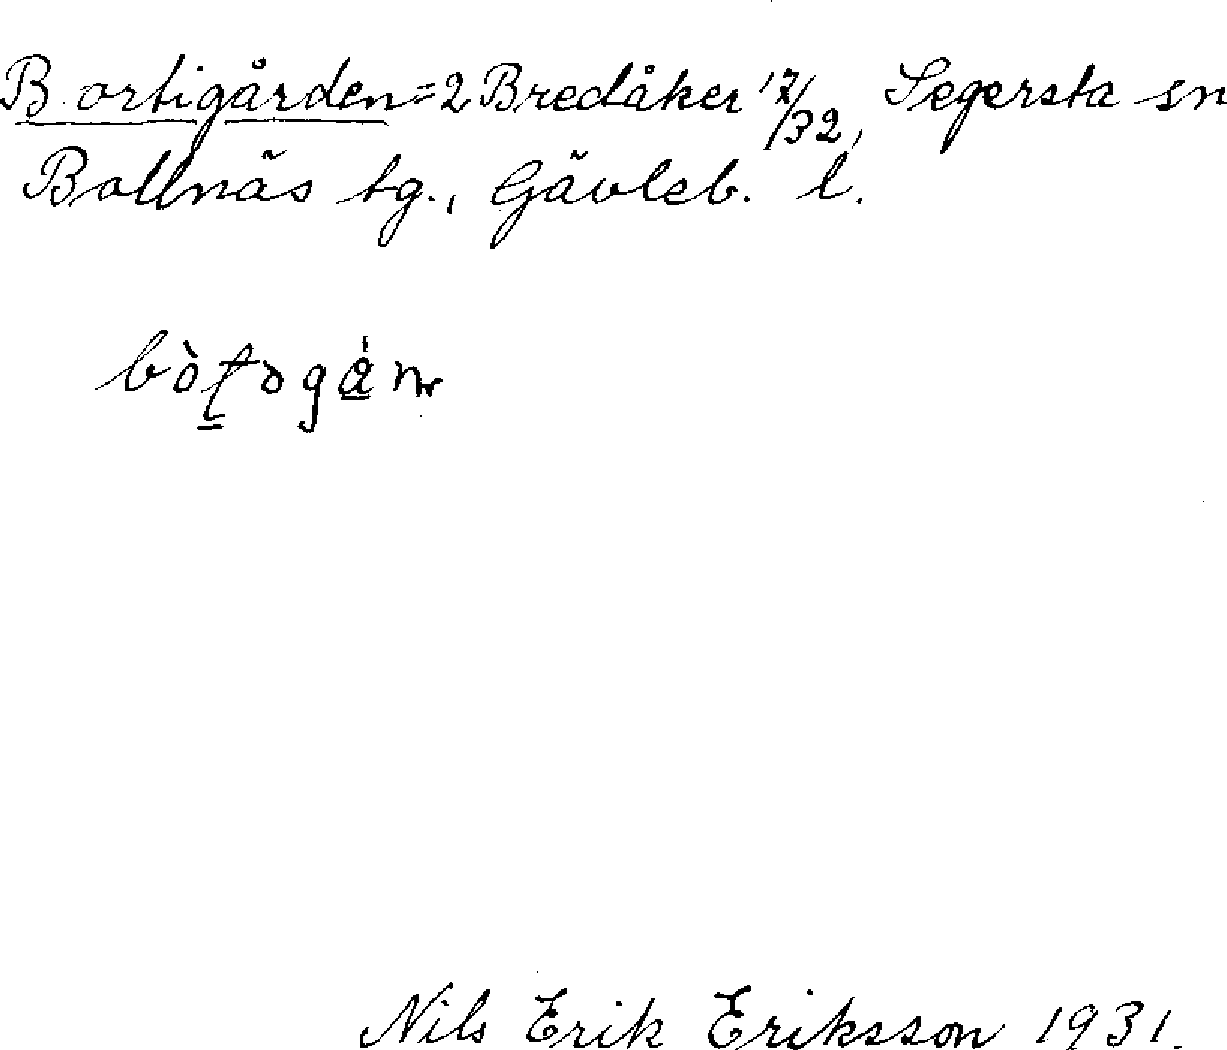 Bortigården = 2 Bredåker 17/32, Segersta sn
Bollnäs tg., Gävleb. l.
Nils Erik Eriksson 1931.